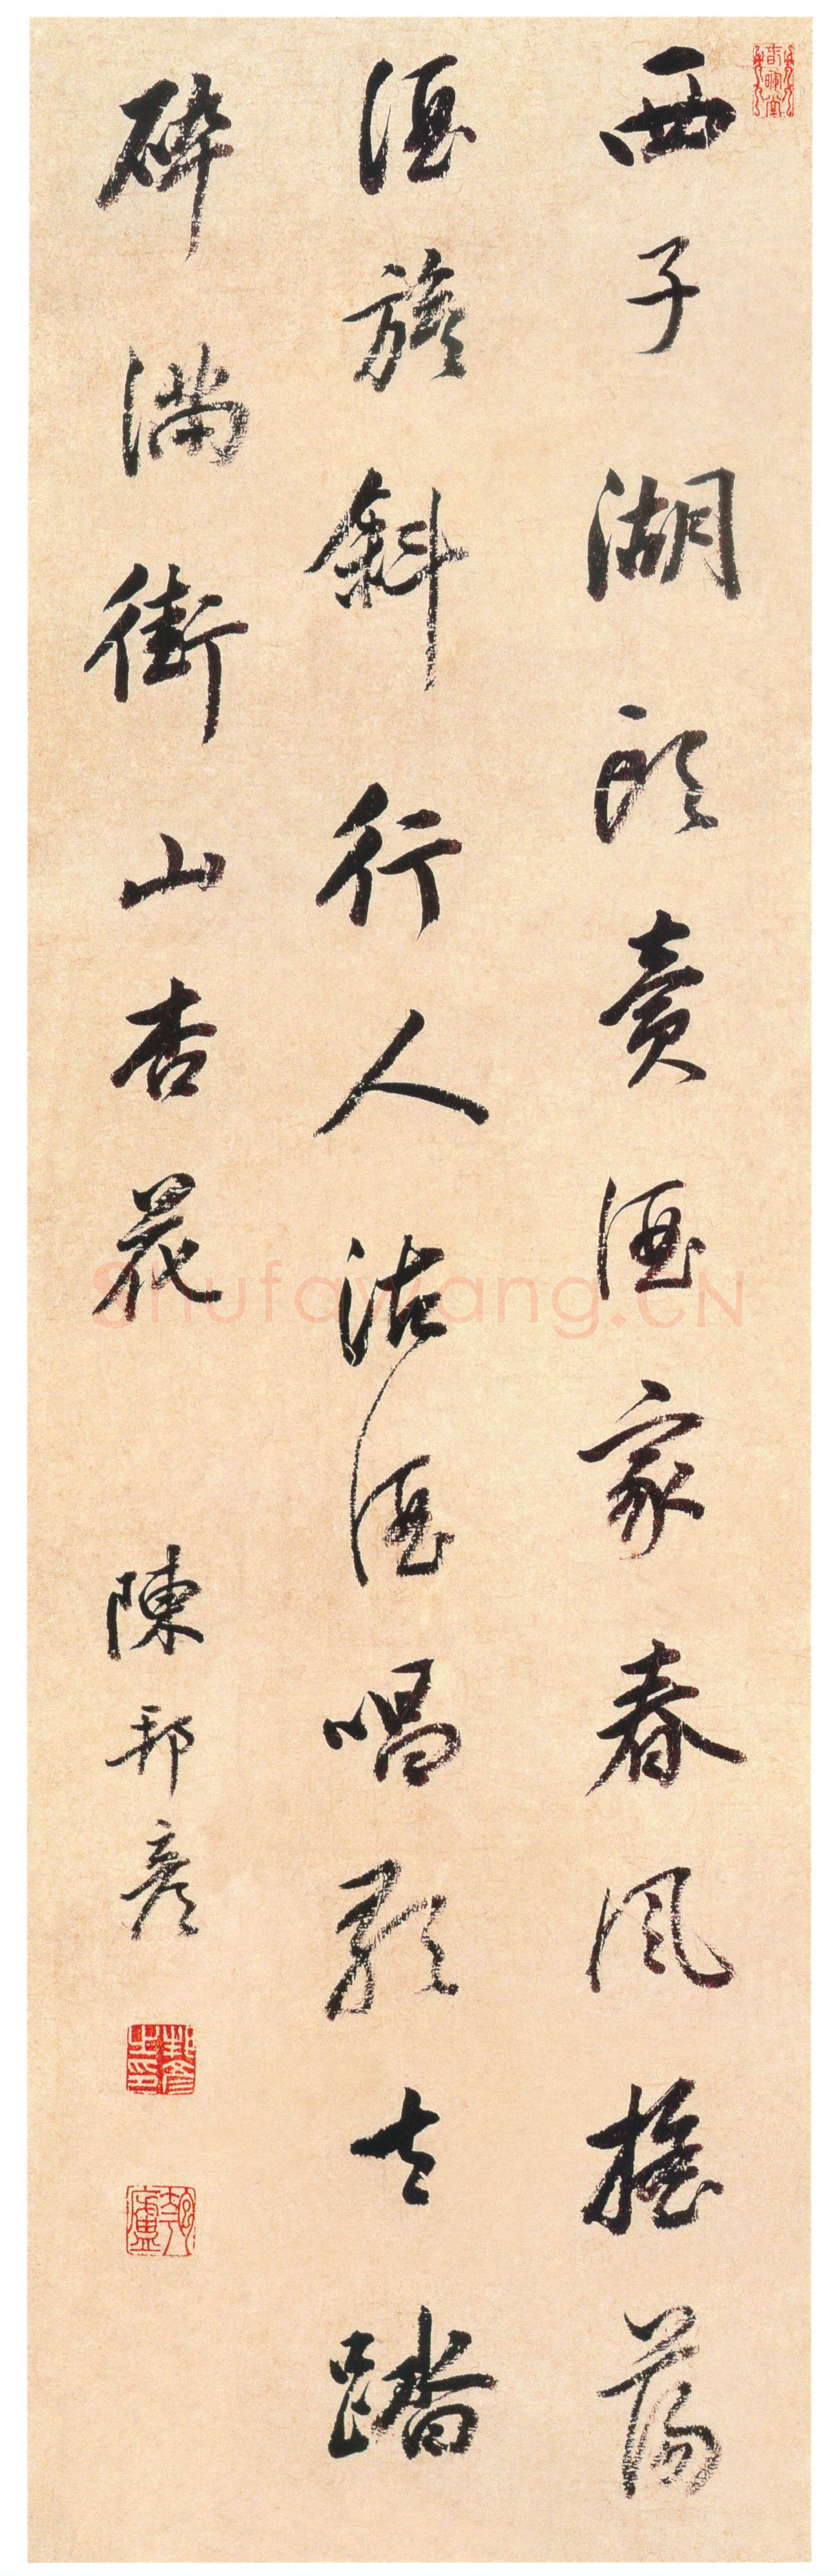 西子湖頭賣酒家春風搖蕩
酒旗斜行人沽酒唱歌去踏
碎滿街山杏花
陳邦彥
邦彥之印
Shufawang.CN